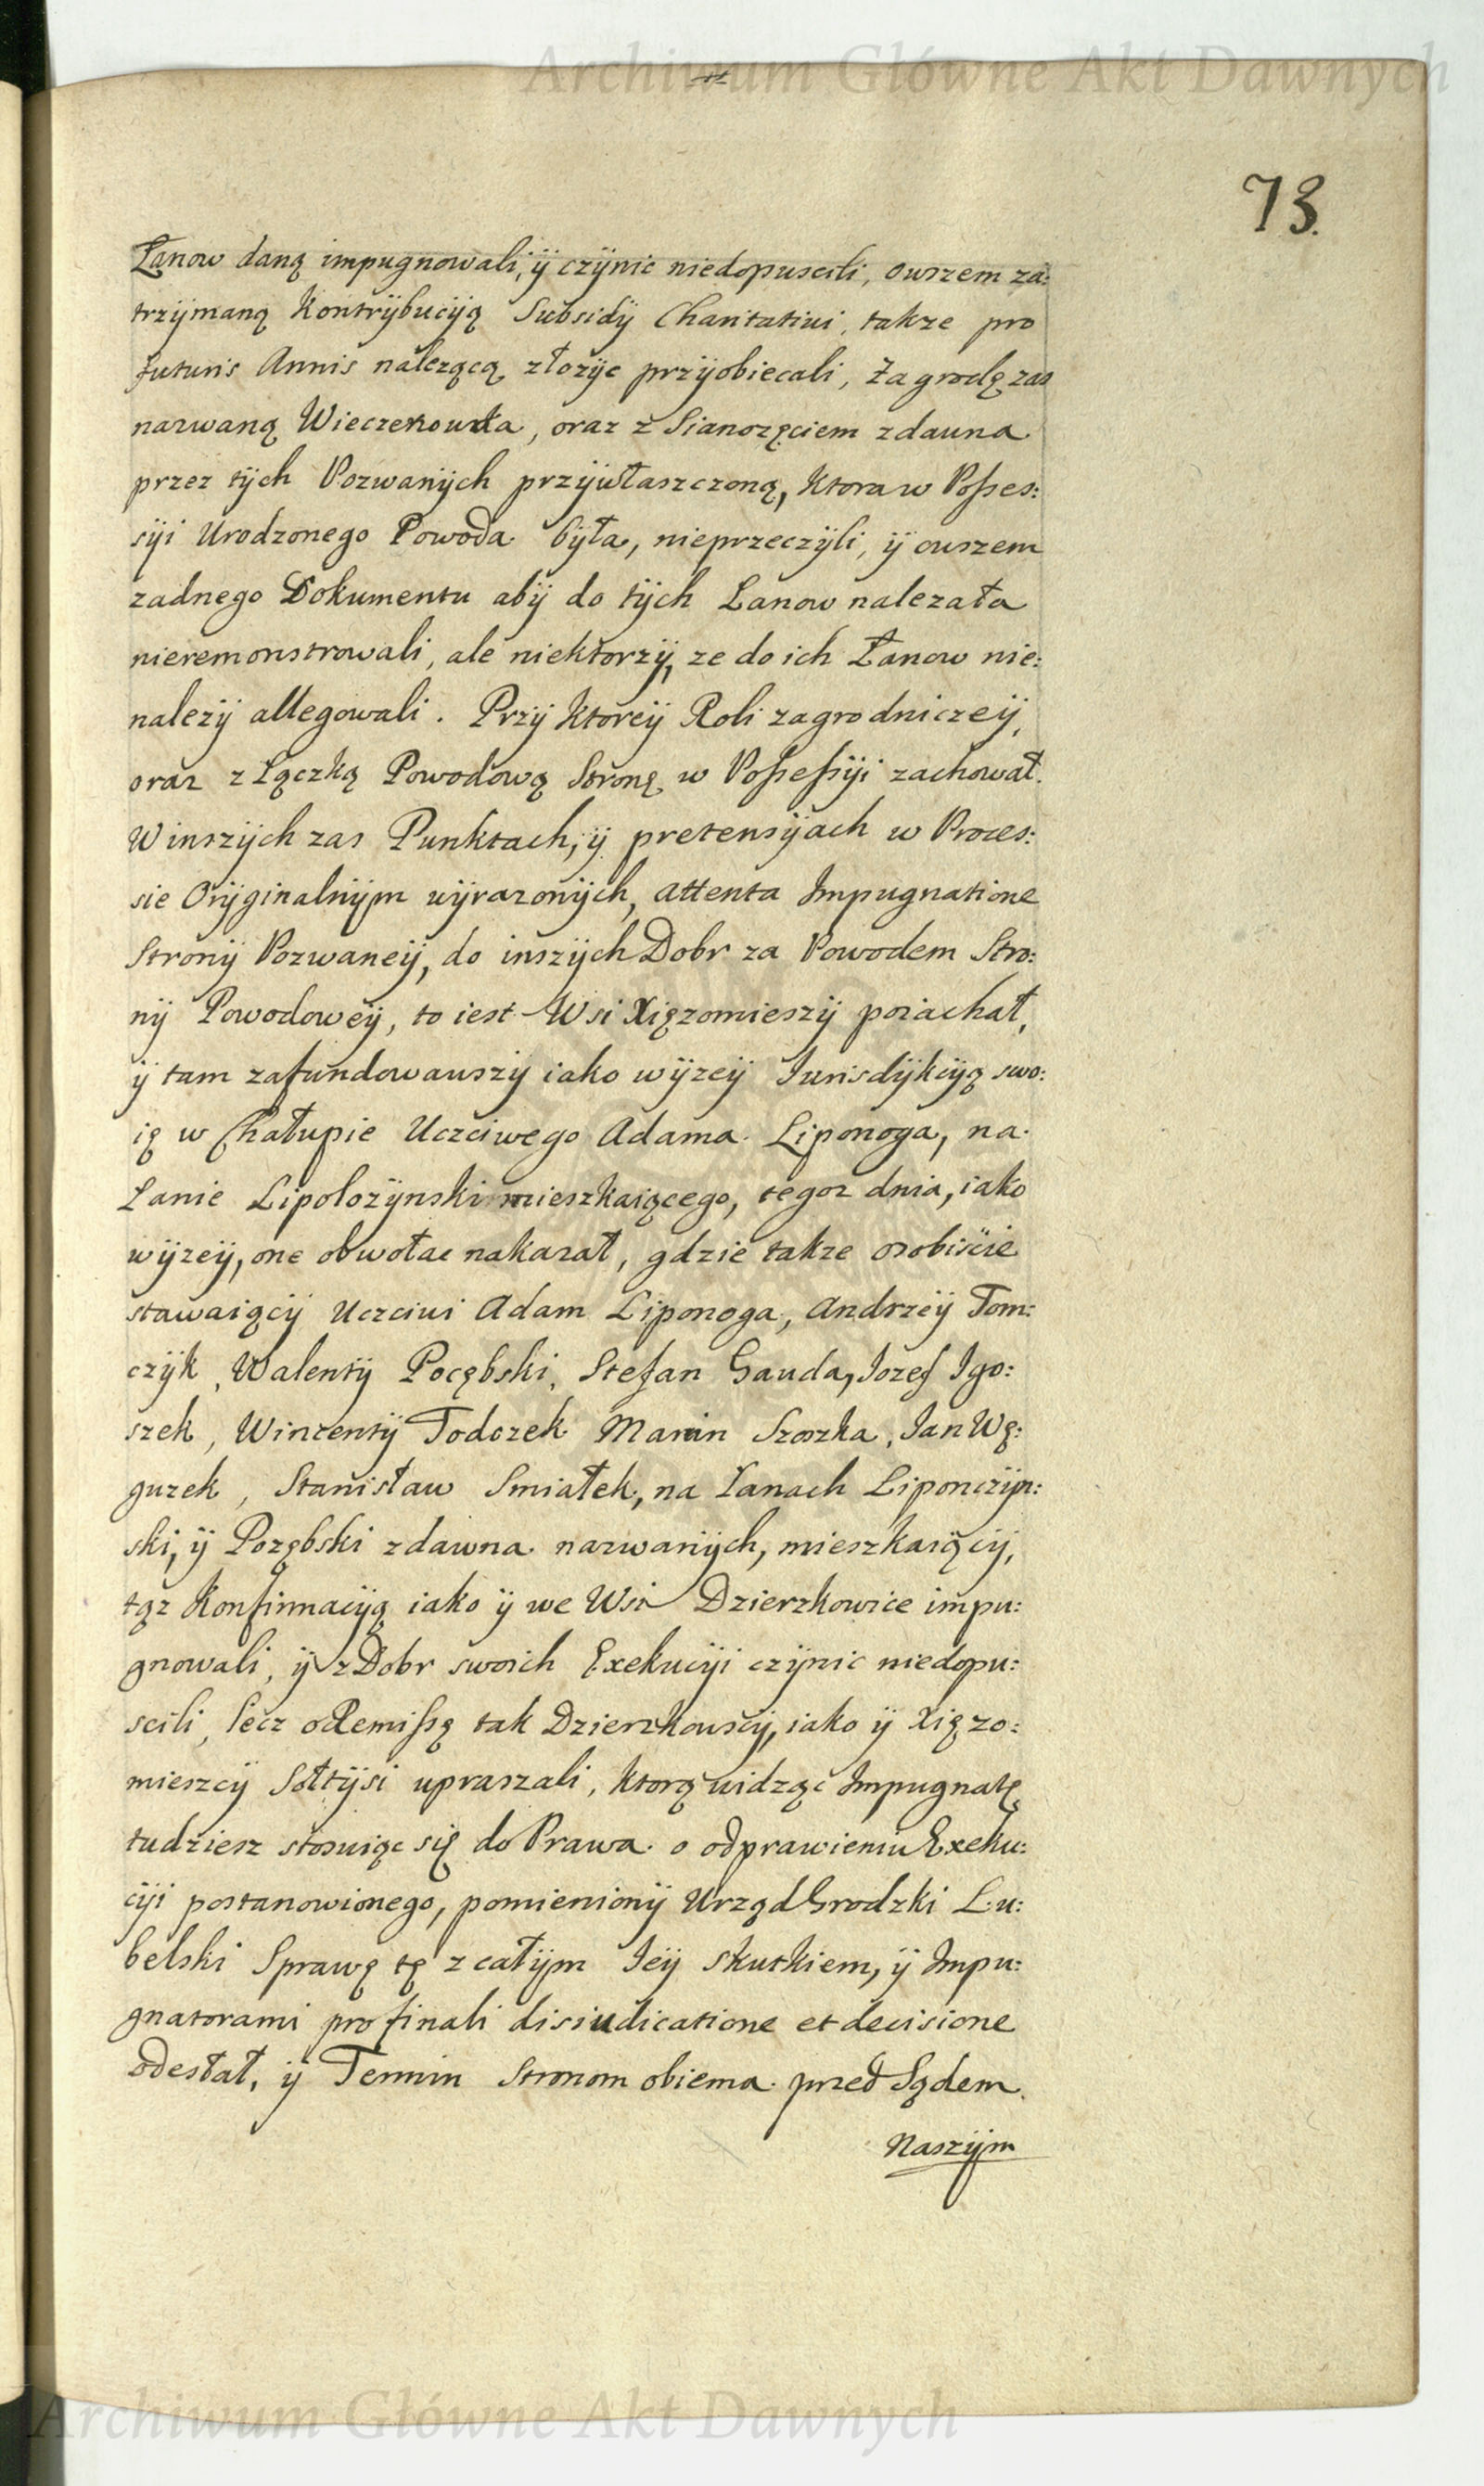 Archiwum Główne Akt Dawnych
73.
Łanow daną impugnowali, ÿ czÿnic niedopuscili, owszem za:
trzÿmaną Kontrÿbucÿią Subsidÿ Charitativi, takze pro
futuris Annis nalezącą złozÿc przÿobiecali, Zagrodę zas
nazwaną, oraz z Sianozęciem zdawna
przez tÿch Pozwanÿch przÿwłaszczoną, Ktora w Posses:
sÿi Urodzonego Powoda bÿła, nieprzeczÿli, ÿ owszem
zadnego Dokumentu abÿ do tÿch Łanow nalezała
nieremonstrowali, ale niektorzÿ, ze do ich Łanow nie:
nalezÿ allegowali. Przÿ ktoreÿ Roli zagrodniczeÿ,
oraz z Łączką Powodową Stronę w Possessÿi zachował.
W inszÿch zas Punktach, ÿ pretensÿach w Proces:
sie Orÿginalnÿm wÿrazonÿch, attenta Impugnatione
Stronÿ Pozwaneÿ, do inszÿch Dobr za Powodem Stro:
nÿ Powodoweÿ, to iest Wsi Xięzomieszÿ poiachał,
ÿ tam zafundowawszÿ iako wÿzeÿ Jurisdÿkcÿą swo:
ię w Chałupie Uczciwego Adama Liponoga, na
Łanie Lipolozÿnski mieszkaiącego, tegoz dnia, iako
wÿzeÿ, one obwołac nakazał, gdzie takze osobiscie
stawaiącÿ Uczciwi Adam Liponoga, Andrzeÿ Tom:
czÿk, Walentÿ Pocębski, Stefan Gauda, Jozef Igo:
szek, Wincentÿ Todczek Marcin Szoszka, Jan Wę:
gurek, Stanisław Smiałek, na Łanach Liponczÿn:
ski, ÿ Pozębski zdawna nazwanÿch, mieszkaiącÿ,
tąz Konfirmacÿą iako ÿ we Wsi Dzierzkowice impu:
gnowali, ÿ z Dobr swoich Exekucÿi czÿnic niedopu:
scili, lecz o Remissę tak Dzierzkowscÿ, iako ÿ Xięzo:
mieszcÿ Sołtÿsi upraszali, ktorą widząc Impugnatę
tudziesz stosuiąc się do Prawa o odprawieniu Exeku:
cÿi postanowionego, pomienionÿ Urząd Grodzki Lu:
belski Sprawę tę z całÿm Jeÿ skutkiem, ÿ Impu:
gnatorami pro finali disiudicatione et decisione
odesłał, ÿ Termin Stronom obiema przed Sądem
Naszÿm
Archiwum Główne Akt Dawnych